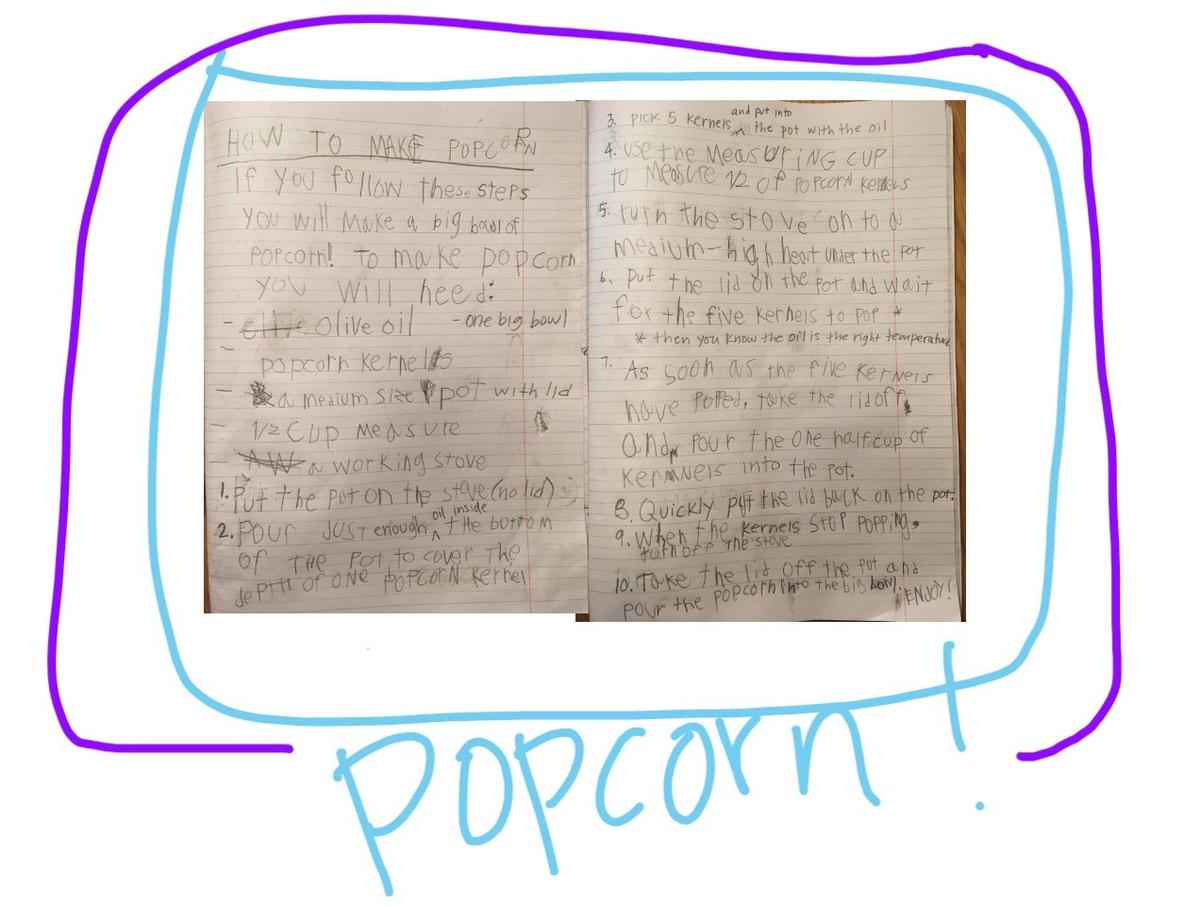 HOW TO MAKE POPCORN
If you follow these steps
you will make a big bowl of
popcorn! To make popcorn
you will need:
- Olive oil - one big bowl
- popcorn kernels
- a medium size pot with lid
- 1/2 cup measure
- a working stove
1. Put the pot on the stove (no lid) :)
2. Pour just enough oil inside the bottom
of the pot to cover the
depth of one popcorn kernel
3. pick 5 kernels and put into the pot with the oil
4. Use the measuring cup
to measure 1/2 of popcorn kernels
5. turn the stove on to a
medium-high heat under the pot
6. put the lid on the pot and wait
for the five kernels to pop *
* then you know the oil is the right temperature
7. As soon as the five kernels
have poped, take the lid off,
and pour the one half cup of
kernels into the pot.
8. Quickly put the lid back on the pot.
9. When the kernels stop popping,
turn off the stove
10. Take the lid off the pot and
pour the popcorn into the big bowl. ENJOY!
popcorn!